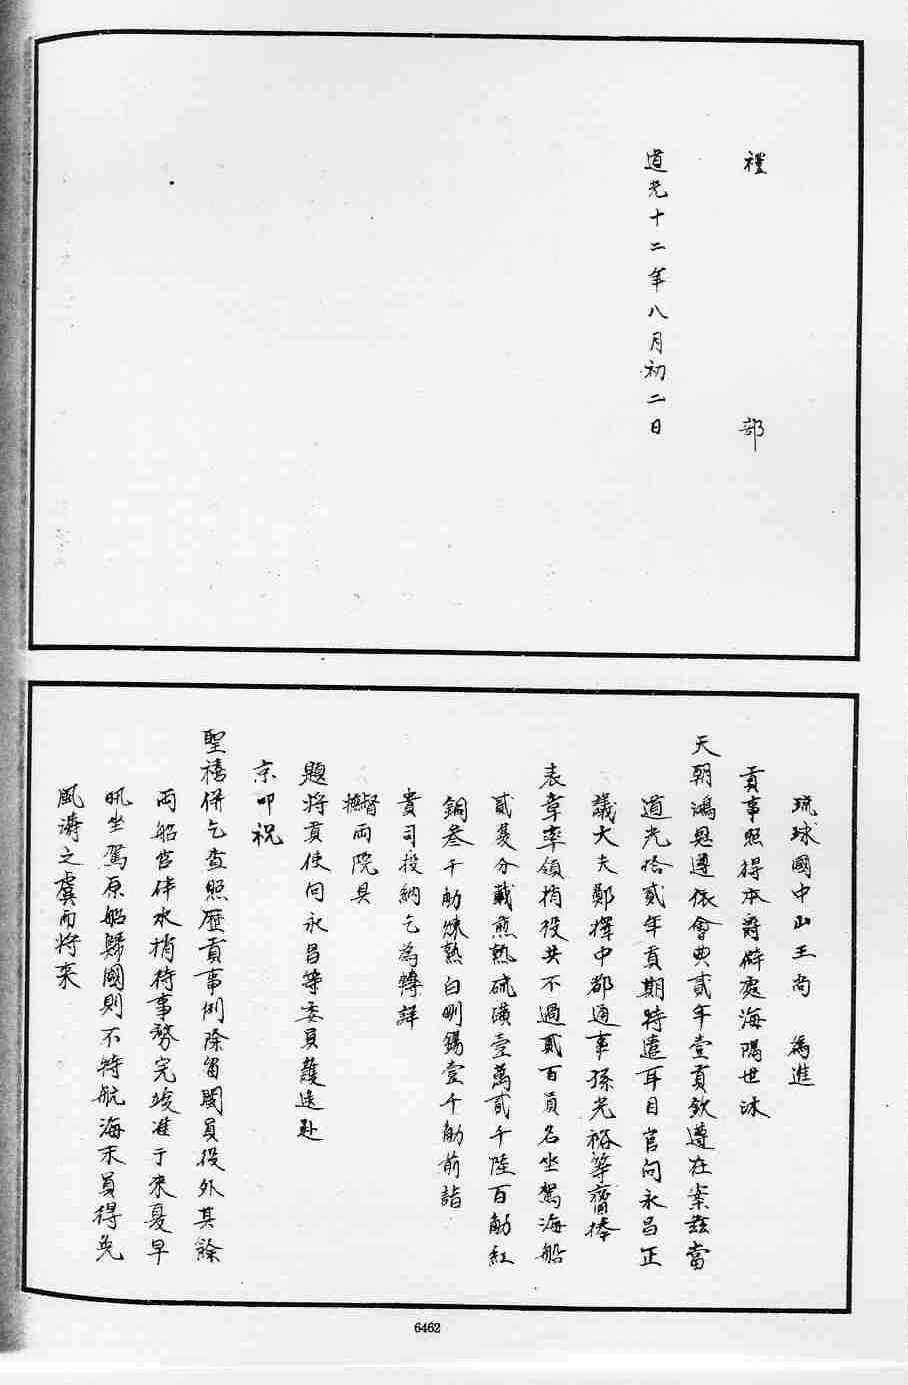 禮部
道光十二年八月初二日
琉球國中山王尚 為進
貢事照得本爵僻處海隅世沐
天朝鴻恩遵依會典貳年壹貢欽遵在案茲當
道光拾貳年貢期特遣耳目官向永昌正
議大夫鄭擇中都通事孫光裕等齎捧
表章率領梢役共不過貳百員名坐駕海船
貳隻分載煎熟硫磺壹萬貳千陸百觔紅
銅叁千觔煉熟白剛錫壹千觔前詣
貴司投納乞為轉詳
督撫兩院具
題將貢使向永昌等委員護送赴
京叩祝
聖禧併乞查照歷貢事例除留閩員役外其餘
两船官伴水梢待事務完竣准于來夏早
汛坐駕原船歸國則不特航海末員得免
風濤之虞而將来
6462